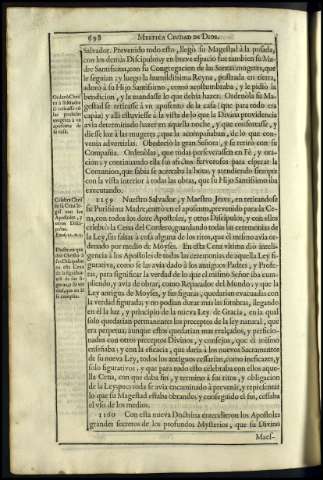 698 MISTICA CIUDAD DE DIOS.
Salvador. Prevenido todo esto, llegò su Magestad à la posada,
con los demàs Discipulos: y en breve espacio fue tambien su Ma-
dre Santissima, con su Congregacion de las Santas mugeres, que
le seguian; y luego la humildissima Reyna, postrada en tierra,
adorò à su Hijo Santissimo, como acostumbraba, y le pidiò la
bendicion, y la mandasse lo que debia hazer. Ordenòla su Magestad
se retirasse à un aposento de la casa (que para todo era
capaz) y alli estuviesse à la vista de lo que la Divina providencia
avia determinado hazer en aquella noche, y que confortasse, y
diesse luz à las mugeres, que la acompañaban, de lo que con-
venia advertirlas. Obedeciò la gran Señora, y se retirò con su
Compañia. Ordenòlas, que todas perseverassen en Fè, y ora-
cion; y continuando ella sus afectos fervorosos para esperar la
Comunion, que sabia se acercaba la hora, y atendiendo siempre
con la vista interior à todas las obras, que su Hijo Santissimo iba
executando.
1159 Nuestro Salvador, y Maestro Jesus, en retirandose
su Purissima Madre, entrò en el aposento, prevenido para la Ce-
na, con todos los doze Apostoles, y otros Discipulos, y con ellos
celebrò la Cena del Cordero, guardando todas las ceremonias de
la Ley, sin faltar à cosa alguna de los ritos, que èl mismo avia or-
denado por medio de Moyses. En esta Cena ultima diò inteligencia
à los Apostoles de todas las ceremonias de aquella Ley fi-
gurativa, como se las avia dado à los antiguos Padres, y Profe-
tas, para significar la verdad de lo que el mismo Señor iba cum-
pliendo, y avia de obrar, como Reparador del Mundo; y que la
Ley antigua de Moyses, y sus figuras, quedarian evacuadas con
la verdad figurada; y no podian durar mas las sombras, llegando
en èl la luz, y principio de la nueva Ley de Gracia, en la qual
solo quedarian permanentes los preceptos de la ley natural, que
era perpetua; aunque estos quedarian mas realçados, y perficio-
nados con otros preceptos Divinos, y consejos, que èl mismo
enseñaba; y con la eficacia, que daria à los nuevos Sacramentos
de su nueva Ley, todos los antiguos cessarian, como ineficazes, y
solo figurativos, y que para todo esto celebraba con ellos aque-
lla Cena, con que daba fin, y termino à sus ritos, y obligacion
de la Ley; pues toda se avia encaminado à prevenir, y representar
lo que su Magestad estaba obrando; y conseguido el fin, cessaba
el uso de los medios.
1160 Con esta nueva Doctrina entendieron los Apostoles
grandes secretos de los profundos Mysterios, que su Divino
Maes-